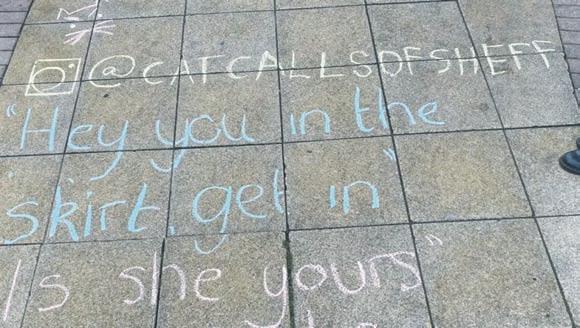 @CATCALLSOFSHEFF
"Hey you in the
skirt, get in"
Is she yours"